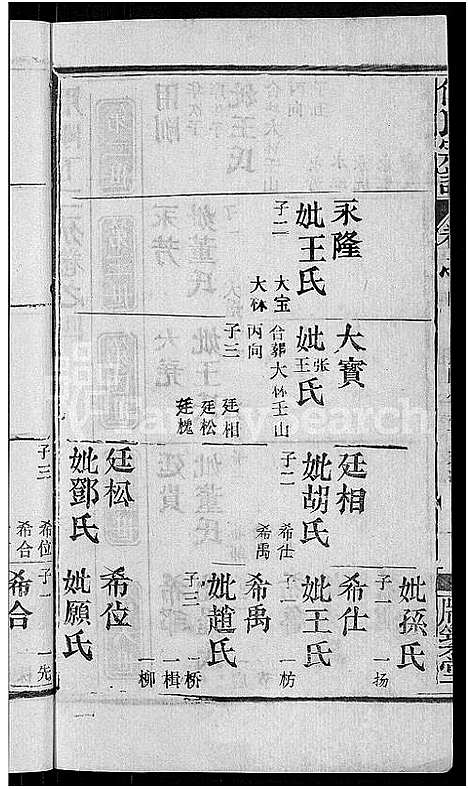 永隆
妣王氏
子二
大宝
大林
大寳
妣張王氏
合葬大林壬山
丙向
子三
廷相
廷松
廷槐
廷相
妣胡氏
子二
希仕
希禹
廷松
妣鄧氏
子三
希位
希合
妣孫氏
子一
一扬
希仕
妣王氏
子一
一枋
希禹
妣趙氏
子三
一桥
一楫
一柳
希位
妣願氏
子一
一先
希合
FamilySearch